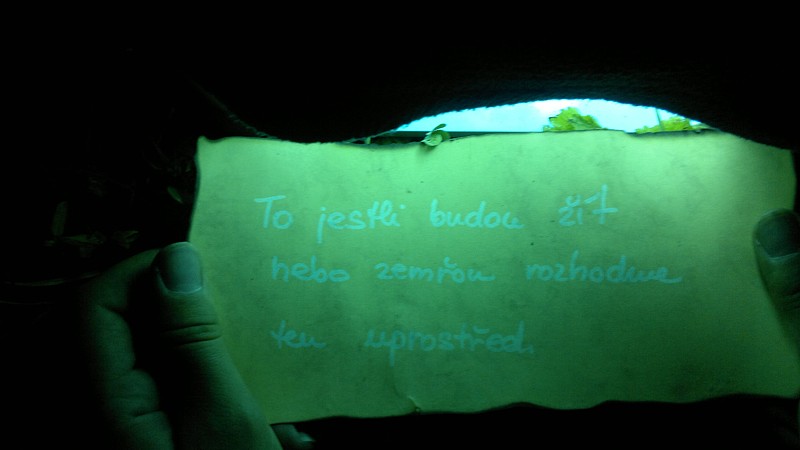 To jestli budou žít
nebo zemřou rozhodne
ten uprostřed.